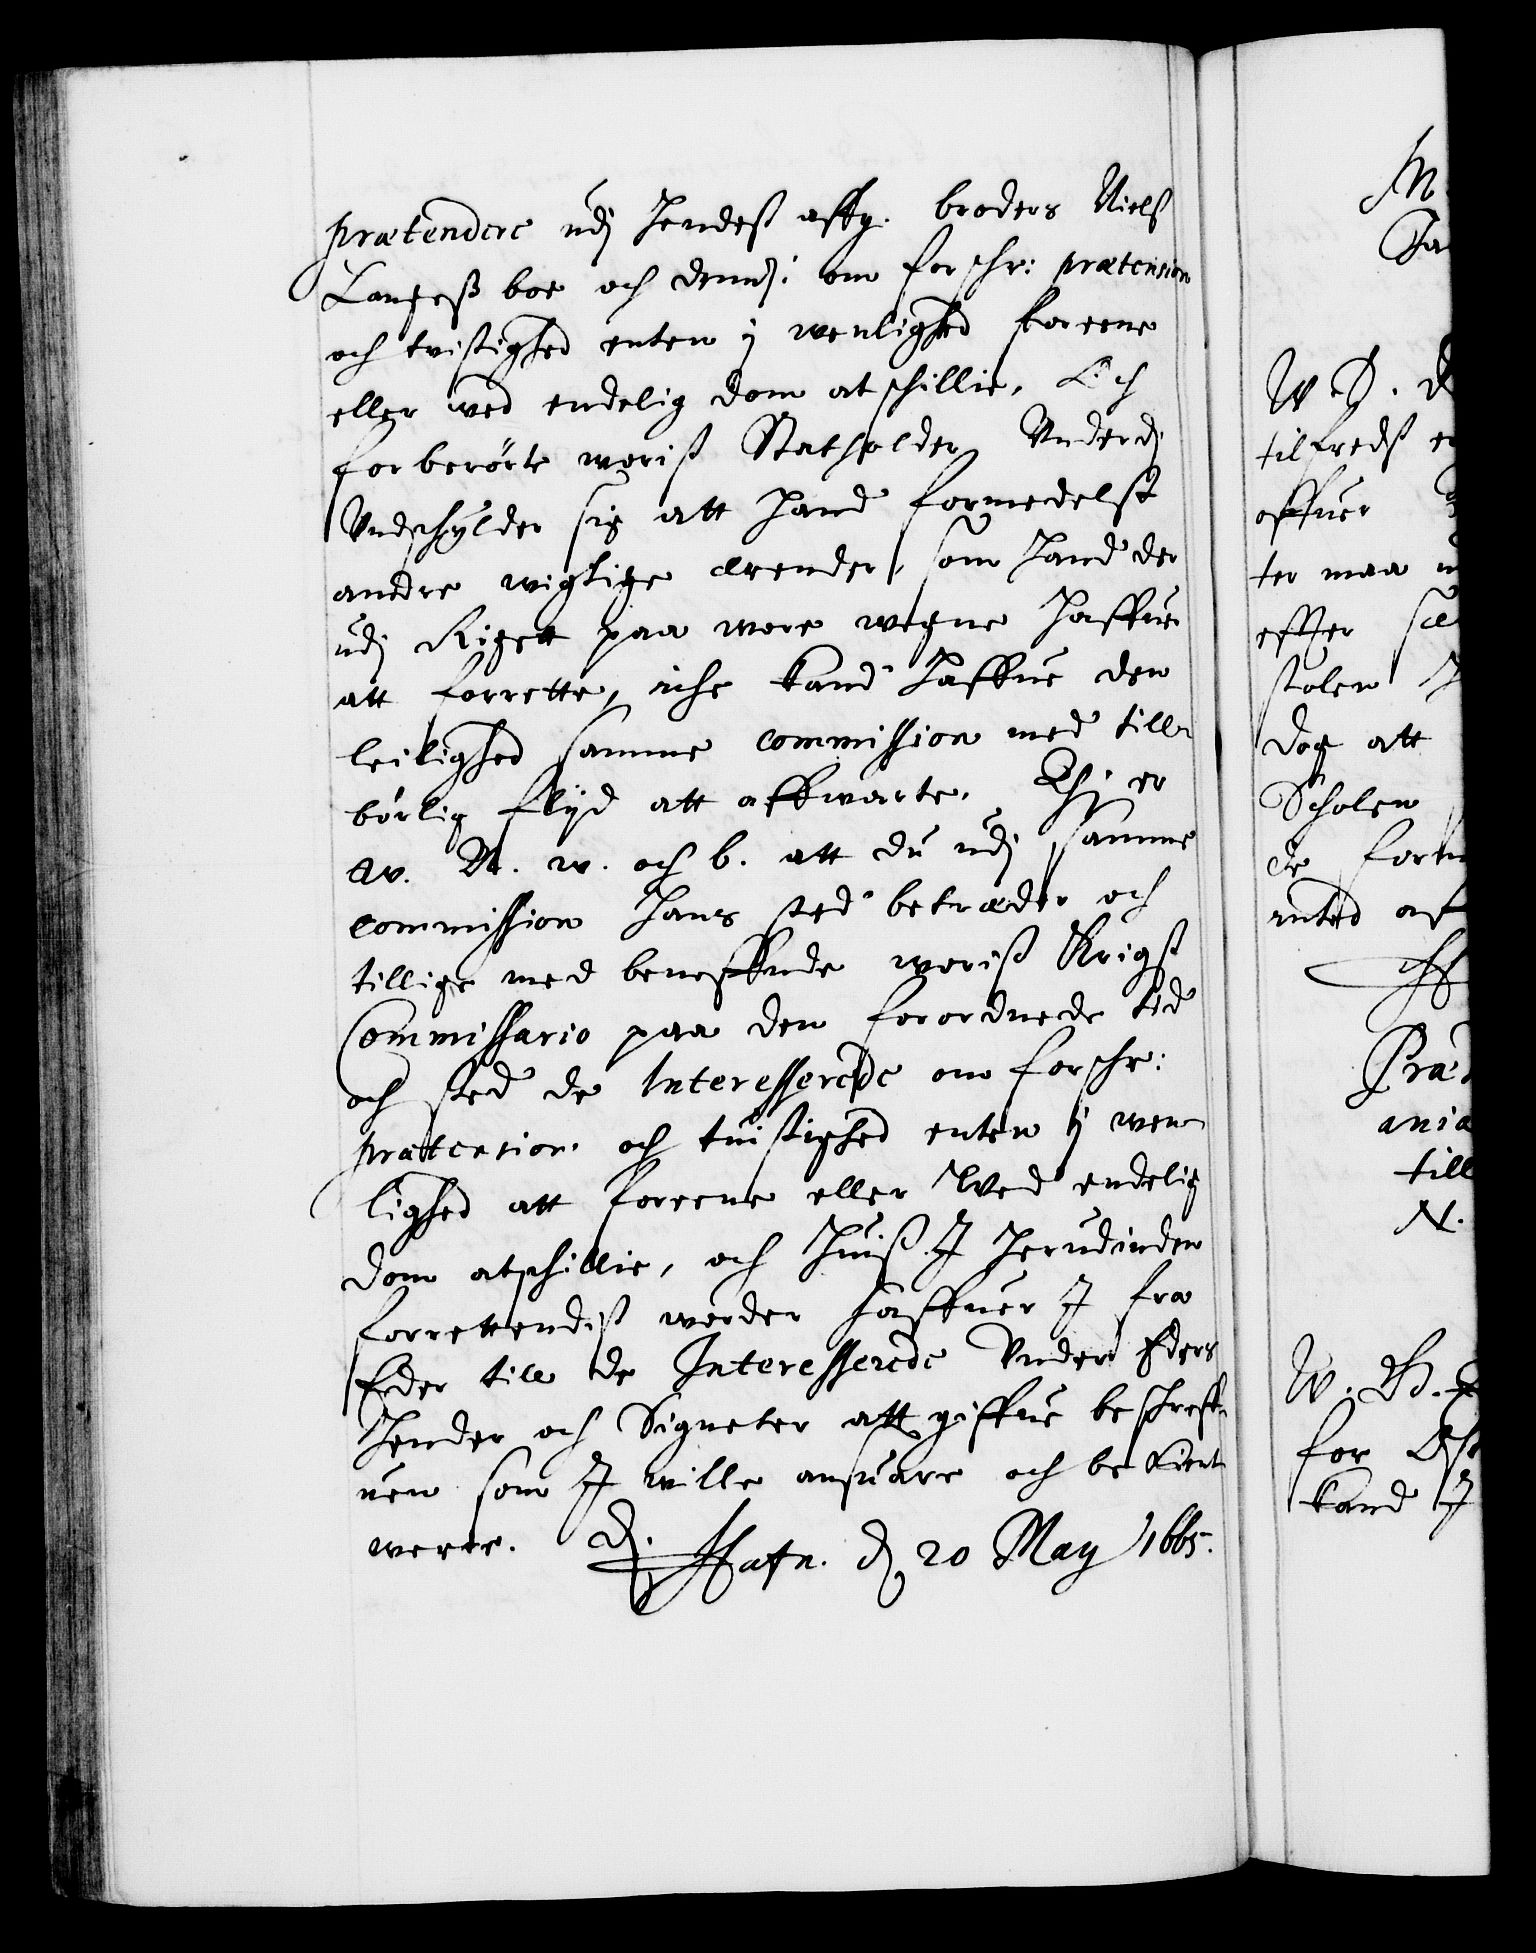 prætendere udj hendeß affg. broders Nielß
Langeß boe och dennd: om forschr: prætension
och tvistighed enten j wenlighed foreene
eller wed endelig dom atschillie, Och
forberörte woriß Statholder Vnderdj
Vndschylder sig att hand formedelst
andre wigtige ærender, som hand der
udj Riget paa wore wegne haffue
att forrette, iche kand haffue den
leilighed samme commission med till-
börlig flijd att affwarte. Thj er
w. N. w. och b. att du udj samme
commission hans sted betræder och
tillige med beneffnde woriß Krigß
Commissario paa den forordnede tid
och sted de Interesserede om forschr:
prætension och tuistighed enten j wen-
lighed att foreene eller Wed endelig
dom atschillie, och huiß J herudinden
forrettendiß worder haffuer J fra
Eder till de Interesserede Vnder Eders
hender och Signeter att giffue beschreff-
uen som J wille ansuare och bekient
werre. D. Hafn. d 20 May 1665.
M.
Ja
W. D.
tilfredß
offuer
ter maa
effter
stolen J
dog att
Scholen
de
Præ
ania
till
N.
W.
for
kand J